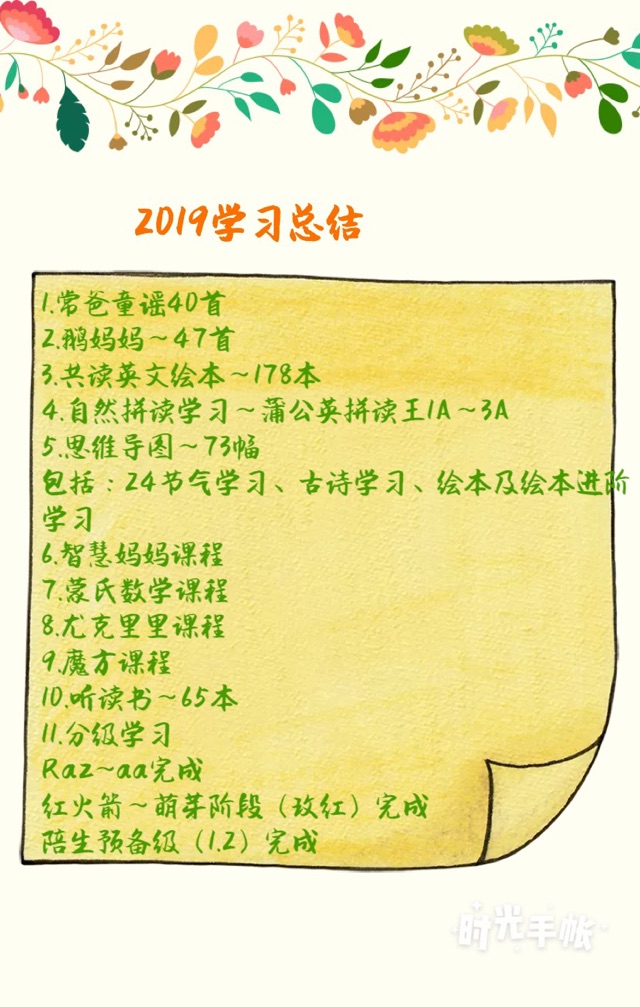 2019学习总结
1.常爸童谣40首
2.鹅妈妈~47首
3.共读英文绘本~178本
4.自然拼读学习~蒲公英拼读王1A~3A
5.思维导图~73幅
包括：24节气学习、古诗学习、绘本及绘本进阶
学习
6.智慧妈妈课程
7.蒙氏数学课程
8.尤克里里课程
9.魔方课程
10.听读书~65本
11.分级学习
Raz~aa完成
红火箭~萌芽阶段（玫红）完成
陪生预备级（1.2）完成
时光手帐